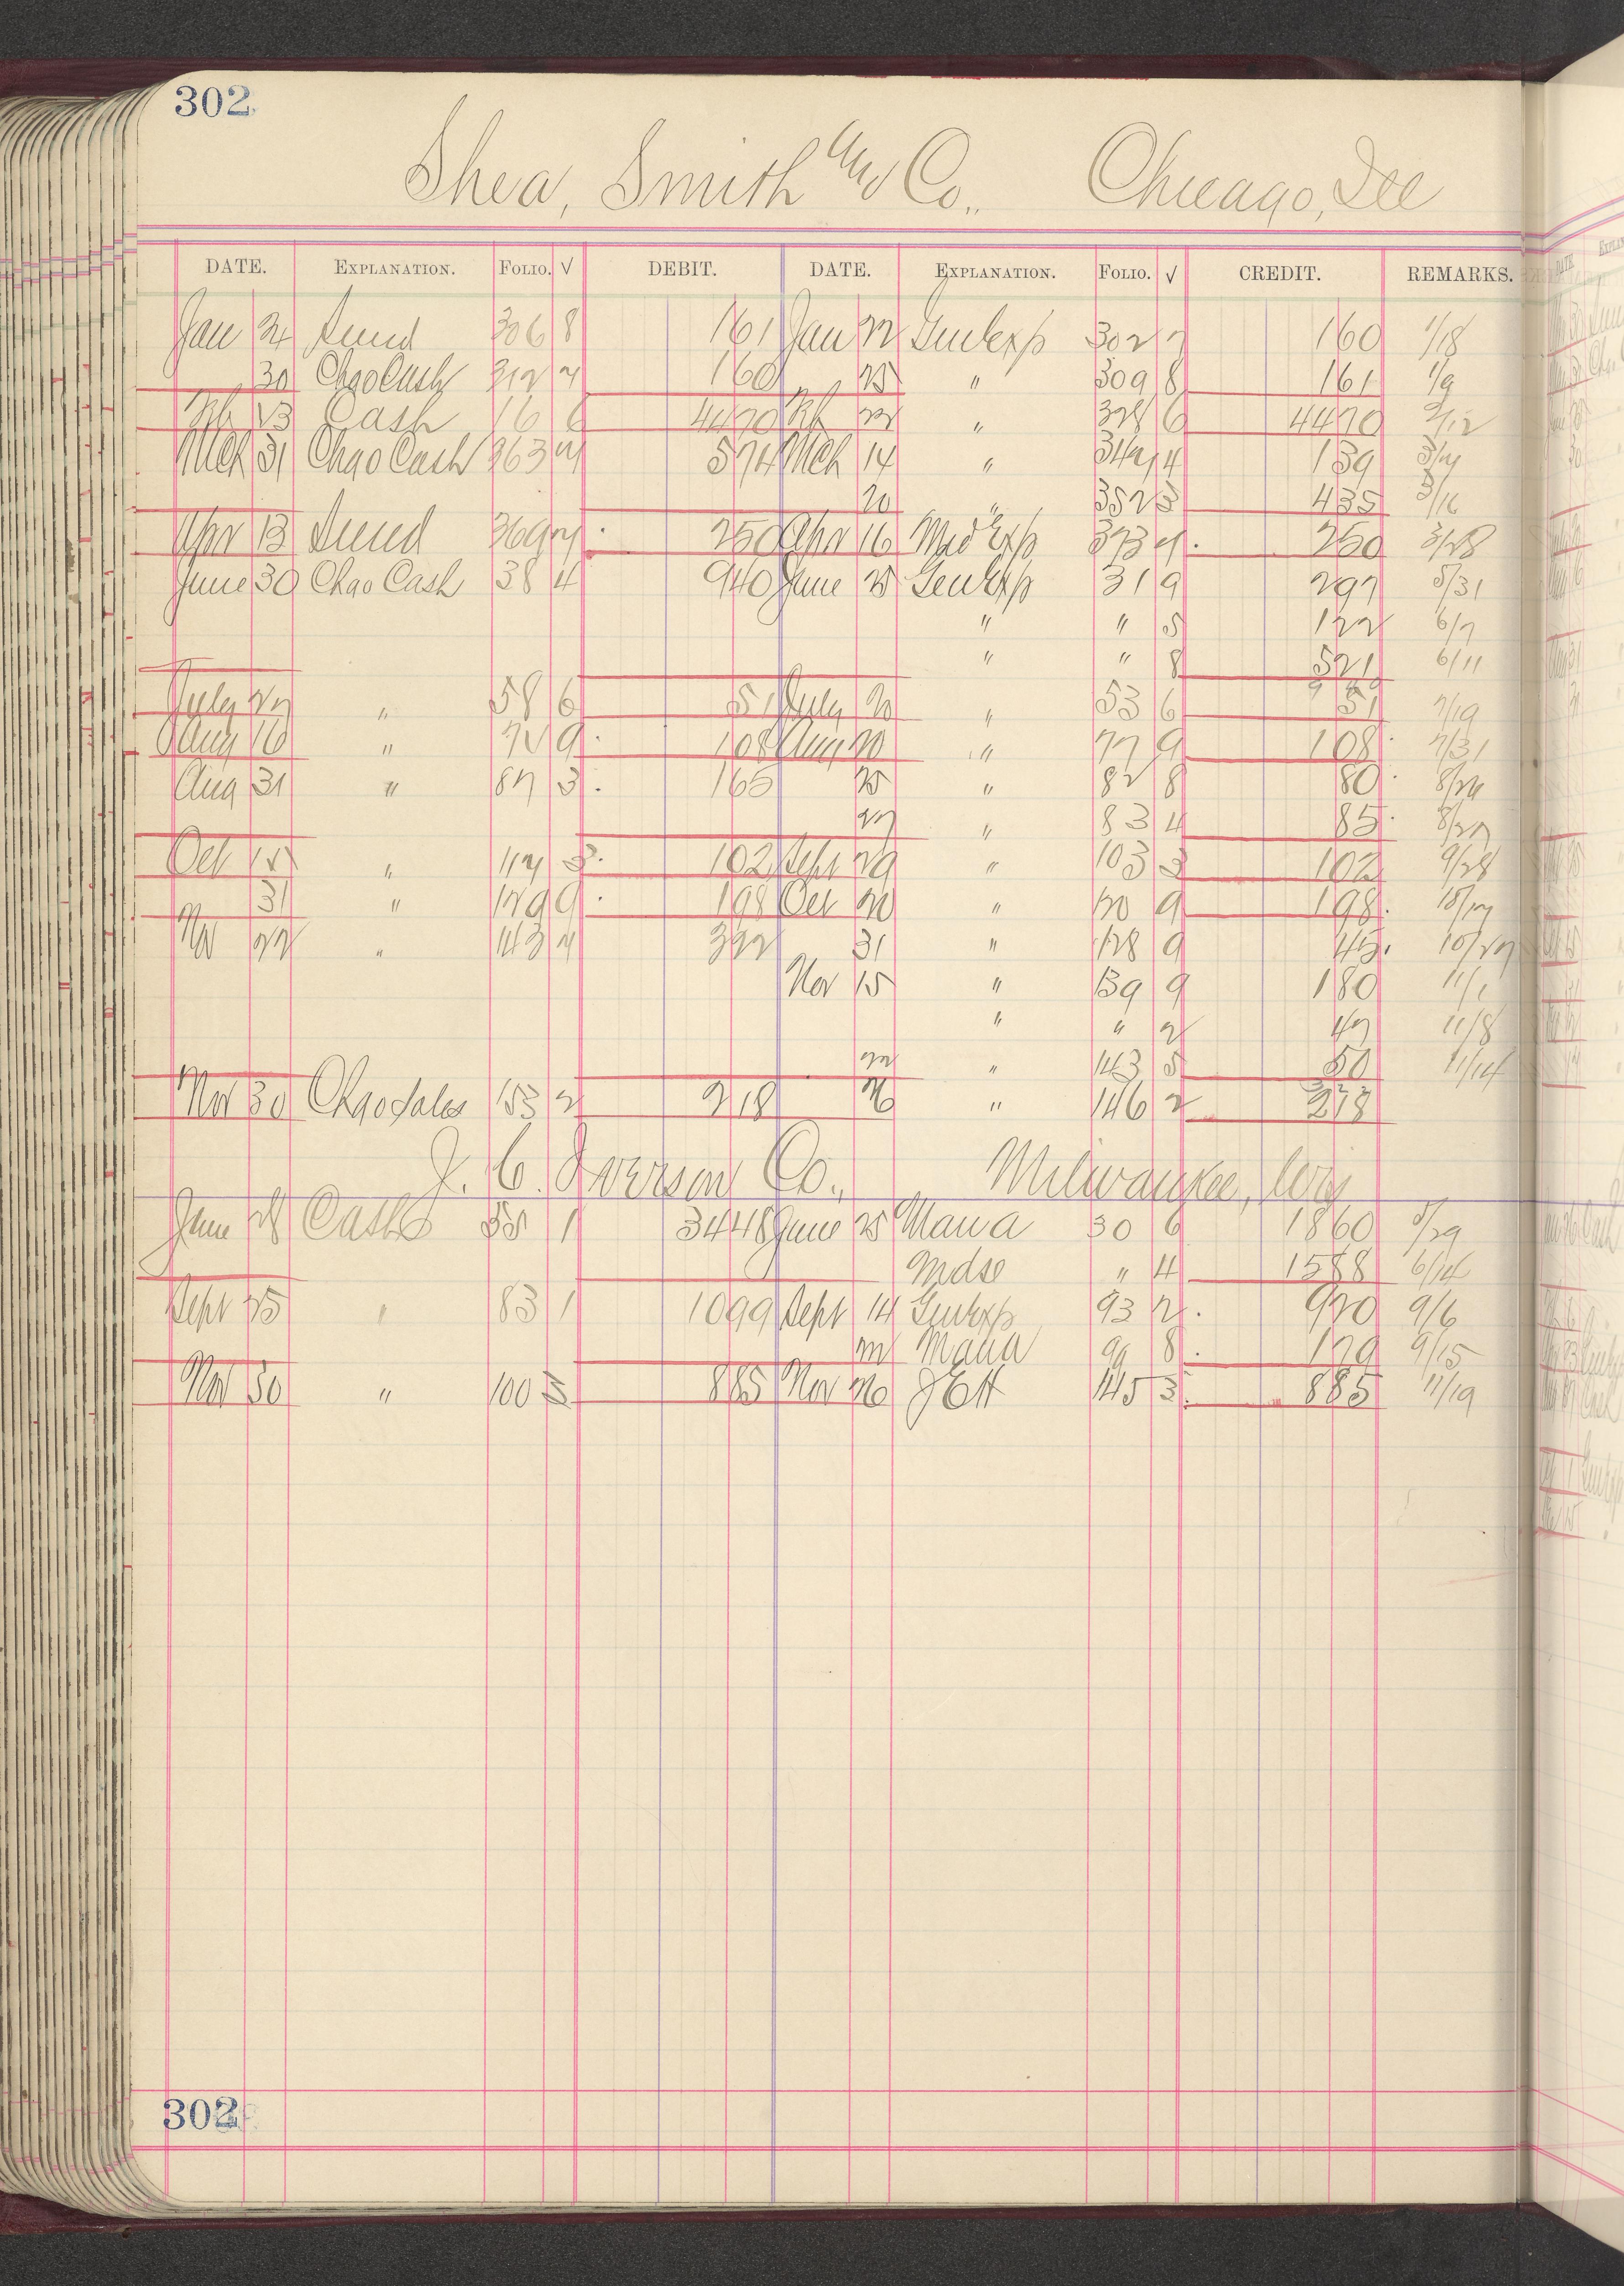 302
Shea, Smith and Co., Chicago, Ill
DATE. EXPLANATION. FOLIO. √ DEBIT. DATE. EXPLANATION. FOLIO. √ CREDIT. REMARKS.
Jan 24 Sund 306 8 161 Jan 22 Genl exp 302 7 160 1/18
30 Chgo Cash 312 7 160 25 " 309 8 161 1/9
Feb 13 Cash 16 6 4470 Feb " 328 6 4470 2/12
Mch 31 Chgo Cash 363 574 Mch 14 " 4 139
20 " 352 3 435 3/16
Apr 13 Sund 369 250 Apr 16 Mfd Exp 373 250 3/28
June 30 Chgo Cash 38 4 940 June 25 Genl Exp 31 9 297 5/31
" " 5 122 6/7
" " 8 521 6/11
July 27 " 58 6 51 July 20 " 53 6 51 7/19
Aug 16 " 74 9 108 Aug 10 " 77 9 108 7/31
Aug 31 " 87 3 165 25 " 82 8 80 8/24
27 " 83 4 85 8/27
Oct " 3 102 Sept 29 " 103 3 102 9/28
31 " 129 9 198 Oct 20 " 120 9 198 10/17
Nov 22 " 143 322 31 " 128 9 45 10/27
Nov 15 " 139 9 180 11/1
" " 2 47 11/8
22 " 143 5 50 11/14
Nov 30 Chgo Sales 153 2 218 26 " 146 2 218
J. C. Iverson Co., Milwaukee, Wis
June 28 Cash 55 1 3448 June 25 Mana 30 6 1860 5/29
Mdse " 4 1588 6/14
Sept 25 " 83 1 1099 Sept 14 Genl exp 93 2 920 9/6
Mana 8 179 9/15
Nov 30 " 100 5 885 Nov 26 J E H 145 3 885 11/19
302